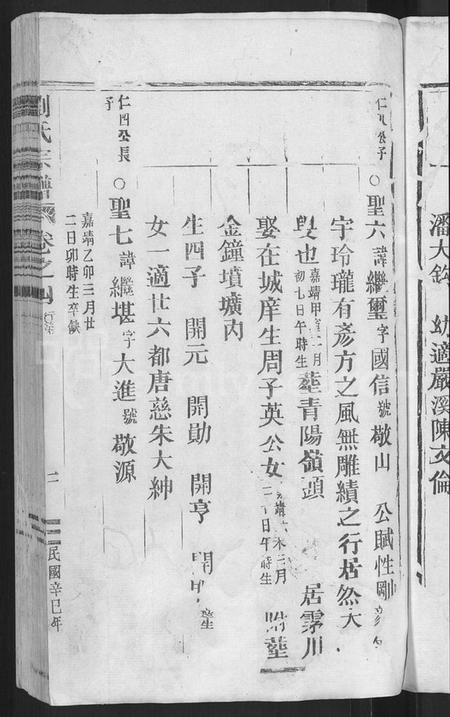 潘大欽　幼適嚴溪陳文倫
仁九公子
○聖六諱繼璽字國信號敬山　公賦性剛
宇玲瓏有彥方之風無雕績之行居然大
也嘉靖甲寅二月初七日午時生塟青陽嶺頭　居霅川
娶在城庠生周子英公女　未三月　日午時生　塟
金鐘墳壙內
生四子　開元　開勛　開亨　開
女一適廿六都唐慈朱大紳
仁四公長子
○聖七諱繼堪字大進號敬源
嘉靖乙卯三月廿二日卯時生卒缺
劉氏宗譜　卷之
民國辛巳年